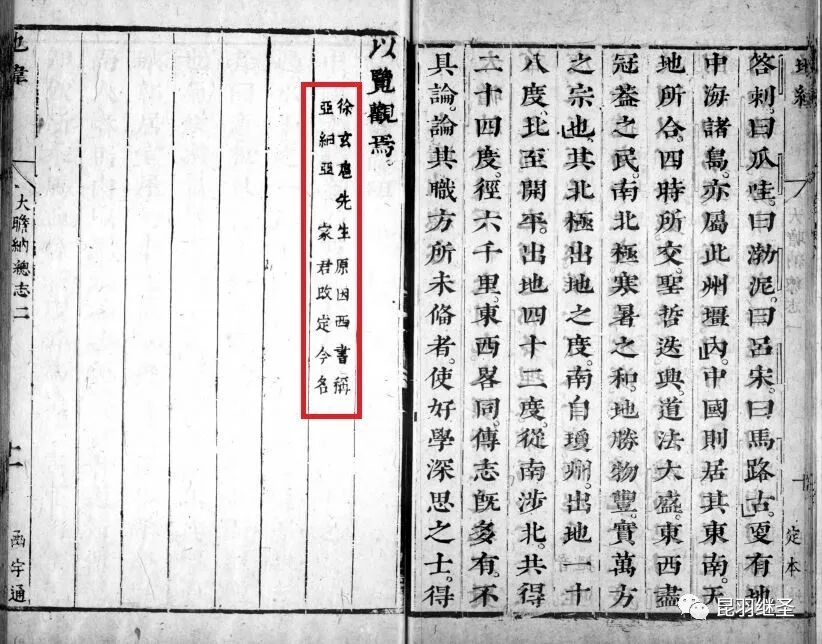 答刺曰瓜哇。曰渤泥。曰呂宋。曰馬路古。更有地
中海諸島。亦屬此州壃內。中國則居其東南。天
地所合。四時所交。聖哲迭興。道法大盛。東西盡
冠葢之民。南北極寒暑之和。地勝物豐。實萬方
之宗也。其北極出地之度。南自瓊州。出地一十
八度。北至開平。出地四十二度。從南涉北。共得
二十四度。徑六千里。東西畧同。傳志旣多有。不
具論。論其職方所未俻者。使好學深思之士。得
以覽觀焉。
徐玄扈先生原因西書稱
亞細亞 家君改定今名
大瞻納總志二
函宇通
定本
昆羽继圣